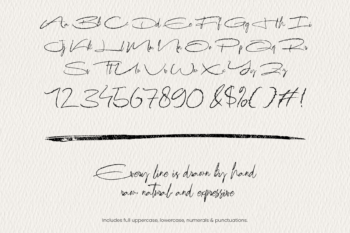 Aa Bb Cc Dd Ee Ff Gg Hh Ii
Jj Kk Ll Mm Nn Oo Pp Qq Rr
Ss Tt Uu Vv Ww Xx Yy Zz
1234567890 &$%()#!
Every line is drawn by hand
raw natural and expressive
Includes full uppercase, lowercase, numerals & punctuations.